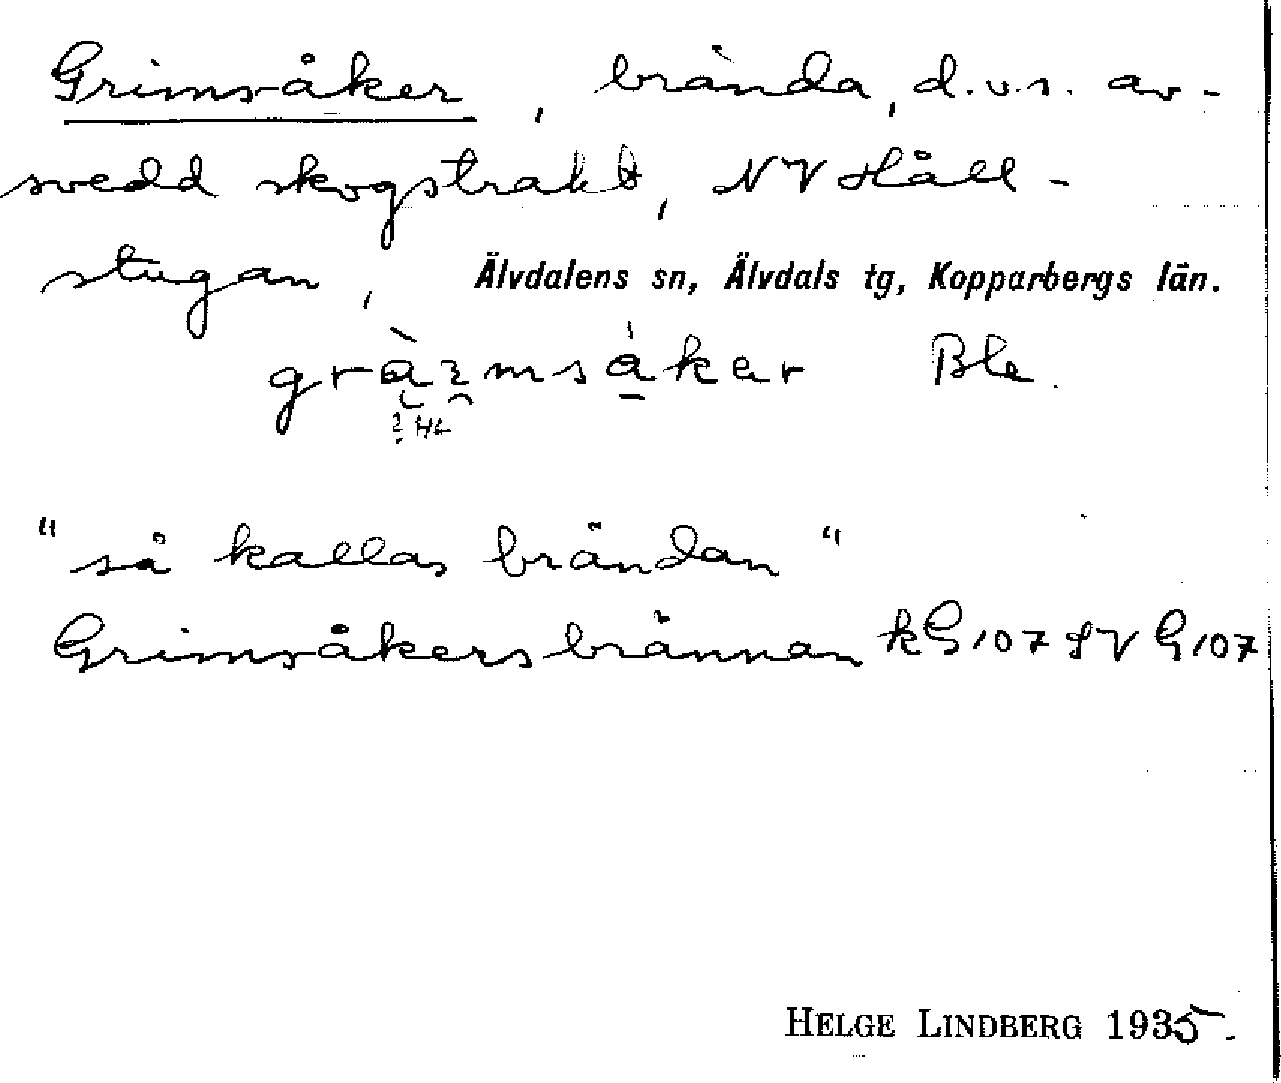 Grimsåker, brända, d.v.s. av-
svedd skogstrakt, NV Håll-
stugan, Älvdalens sn, Älvdals tg, Kopparbergs län.
Ble.
"så kallas brändan"
Grimsåkersbrännan kG107 SV G107
HELGE LINDBERG 1935.